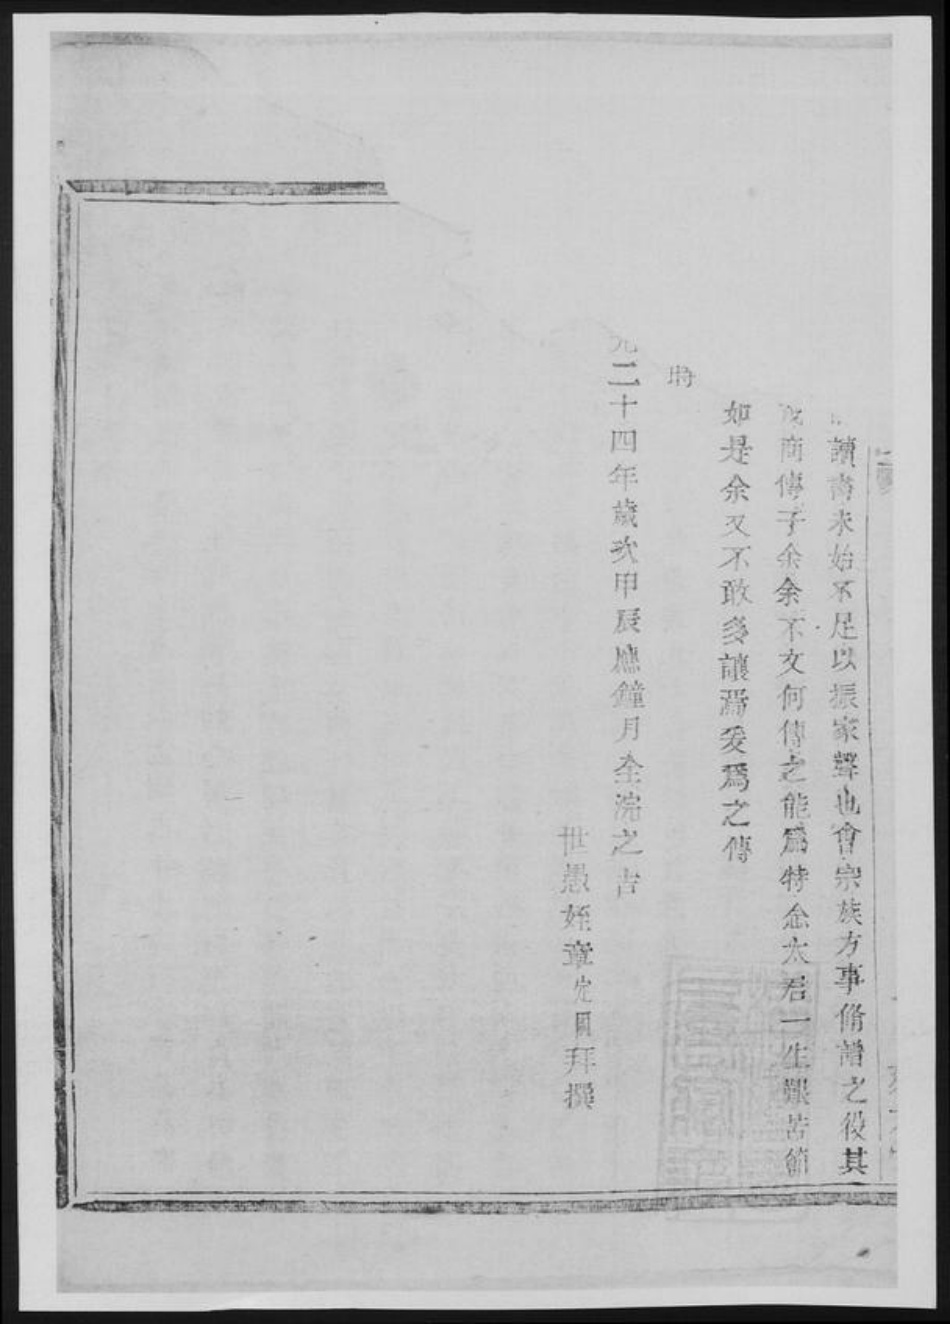 讀書未始不足以振家聲也會宗族方事脩譜之役其
商傳于余余不文何傳之能爲特念太君一生艱苦節
如是余又不敢多讓焉爰爲之傳
時
二十四年歲次甲辰應鐘月全浣之吉
世愚姪章定圓拜撰